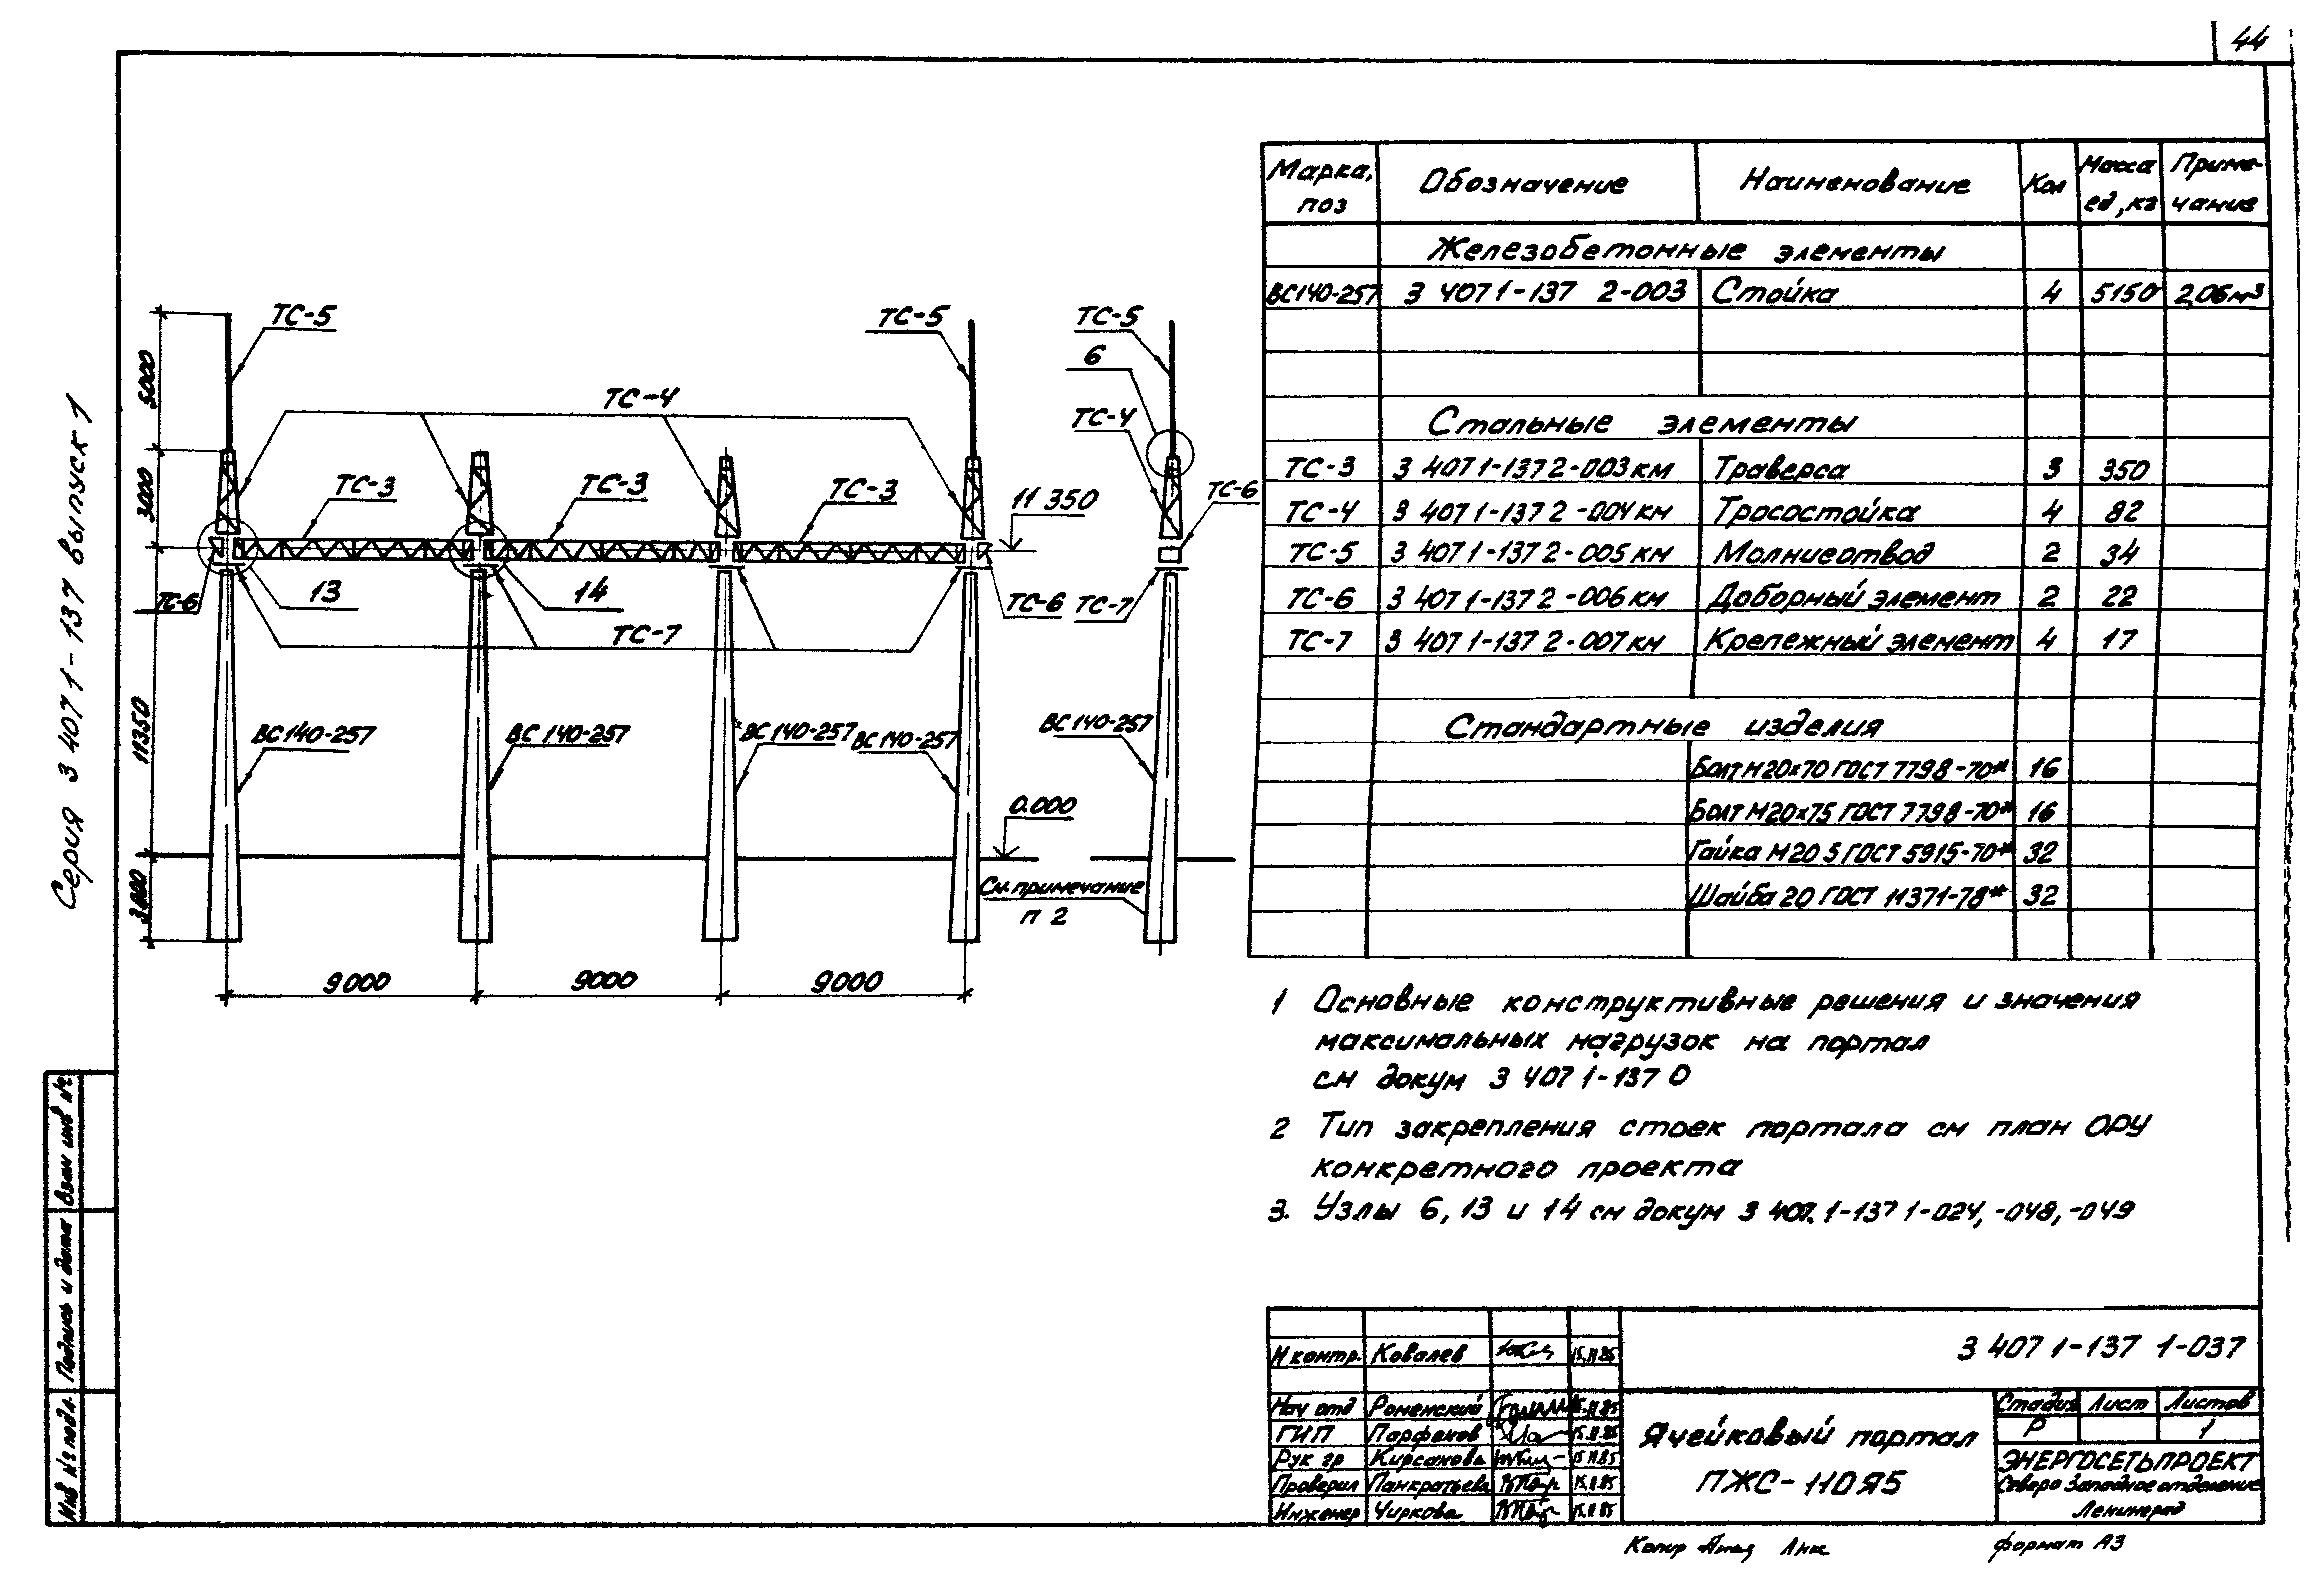 44
Серия 3 407 1-137 выпуск 1
ТС-5
ТС-5
ТС-5
6
ТС-4
ТС-4
ТС-3
ТС-3
ТС-3
11 350
ТС-6
13
14
ТС-6
ТС-6
ТС-7
ТС-7
ВС 140-257
ВС 140-257
ВС 140-257
ВС 140-257
ВС 140-257
0.000
См. примечание
п 2
5000
3000
11350
9000
9000
9000
Марка, поз
Обозначение
Наименование
Кол
Масса ед, кг
Примечание
Железобетонные элементы
ВС140-257 3 407 1-137 2-003 Стойка 4 5150 2,06 м3
Стальные элементы
ТС-3 3 407 1-137 2-003 км Траверса 3 350
ТС-4 3 407 1-137 2-004 км Тросостойка 4 82
ТС-5 3 407 1-137 2-005 км Молниеотвод 2 34
ТС-6 3 407 1-137 2-006 км Доборный элемент 2 22
ТС-7 3 407 1-137 2-007 км Крепежный элемент 4 17
Стандартные изделия
Болт М20х70 ГОСТ 7798-70* 16
Болт М20х75 ГОСТ 7798-70* 16
Гайка М20 5 ГОСТ 5915-70* 32
Шайба 20 ГОСТ 11371-78* 32
1 Основные конструктивные решения и значения
максимальных нагрузок на портал
см докум 3 407 1-137 0
2 Тип закрепления стоек портала см план ОРУ
конкретного проекта
3. Узлы 6, 13 и 14 см докум 3 407. 1-137 1-024, -048, -049
Взам инв №
Подпись и дата
Инв № подл.
Н контр. Ковалев 15.11.85
Нач отд Роменский 15.11.85
ГИП Парфенов 15.11.85
Рук гр Кирсанова 15.11.85
Проверил Панкратьева 15.11.85
Инженер Чиркова 15.11.85
3 407 1-137 1-037
Ячейковый портал
ПЖС-110Я5
Стадия Лист Листов
Р 1
ЭНЕРГОСЕТЬПРОЕКТ
Северо Западное отделение
Ленинград
Копир
формат А3